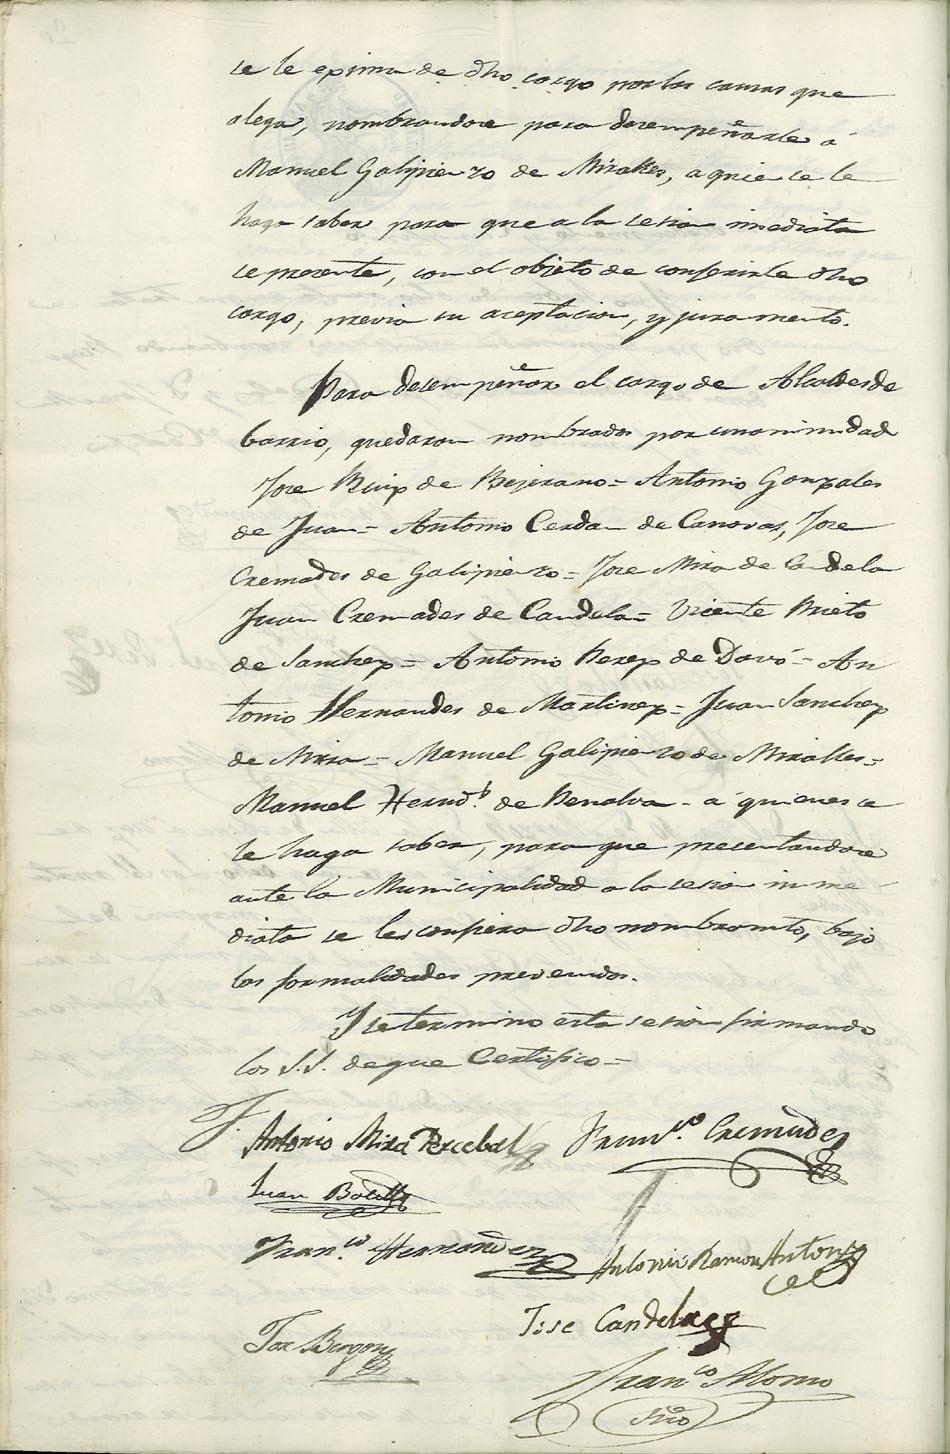 se le exima de dho cargo por las causas que
alega, nombrandose para desempeñarle á
Manuel Galipienzo de Miralles, a quien se le
haga saber para que a la sesion imediata
se presente, con el objeto de conferirle dho
cargo, previa su aceptacion, y juramento.
Para desempeñar el cargo de Alcaldes de
barrio, quedaron nombrados por unanimidad
Jose Ruiz de Bejerano = Antonio Gonzales
de Juan = Antonio Cerdan de Canovas, Jose
Cremades de Galipienzo = Jose Mira de Candela
Juan Cremades de Candela = Vicente Prieto
de Sanchez = Antonio Perez de Davó = An
tonio Hernandes de Martinez = Juan Sanchez
de Mira = Manuel Galipienzo de Miralles =
Manuel Hernd.ˢ de Penalva - á quienes se
le haga saber, para que presentandose
ante la Municipalidad a la sesion inme
diata se les confiera dho nombramto, bajo
las formalidades prevenidas.
Y se termino esta sesion firmando
los S.S. de que Certifico =
Antonio Mira Percebal Fran.ᶜᵒ Cremades
Juan Botella
Fran.ᶜᵒ Hernandez Antonio Ramon Antonz
Jose Candelaez
Jose Burgos
Fran.ᶜᵒ Alonso
Srio